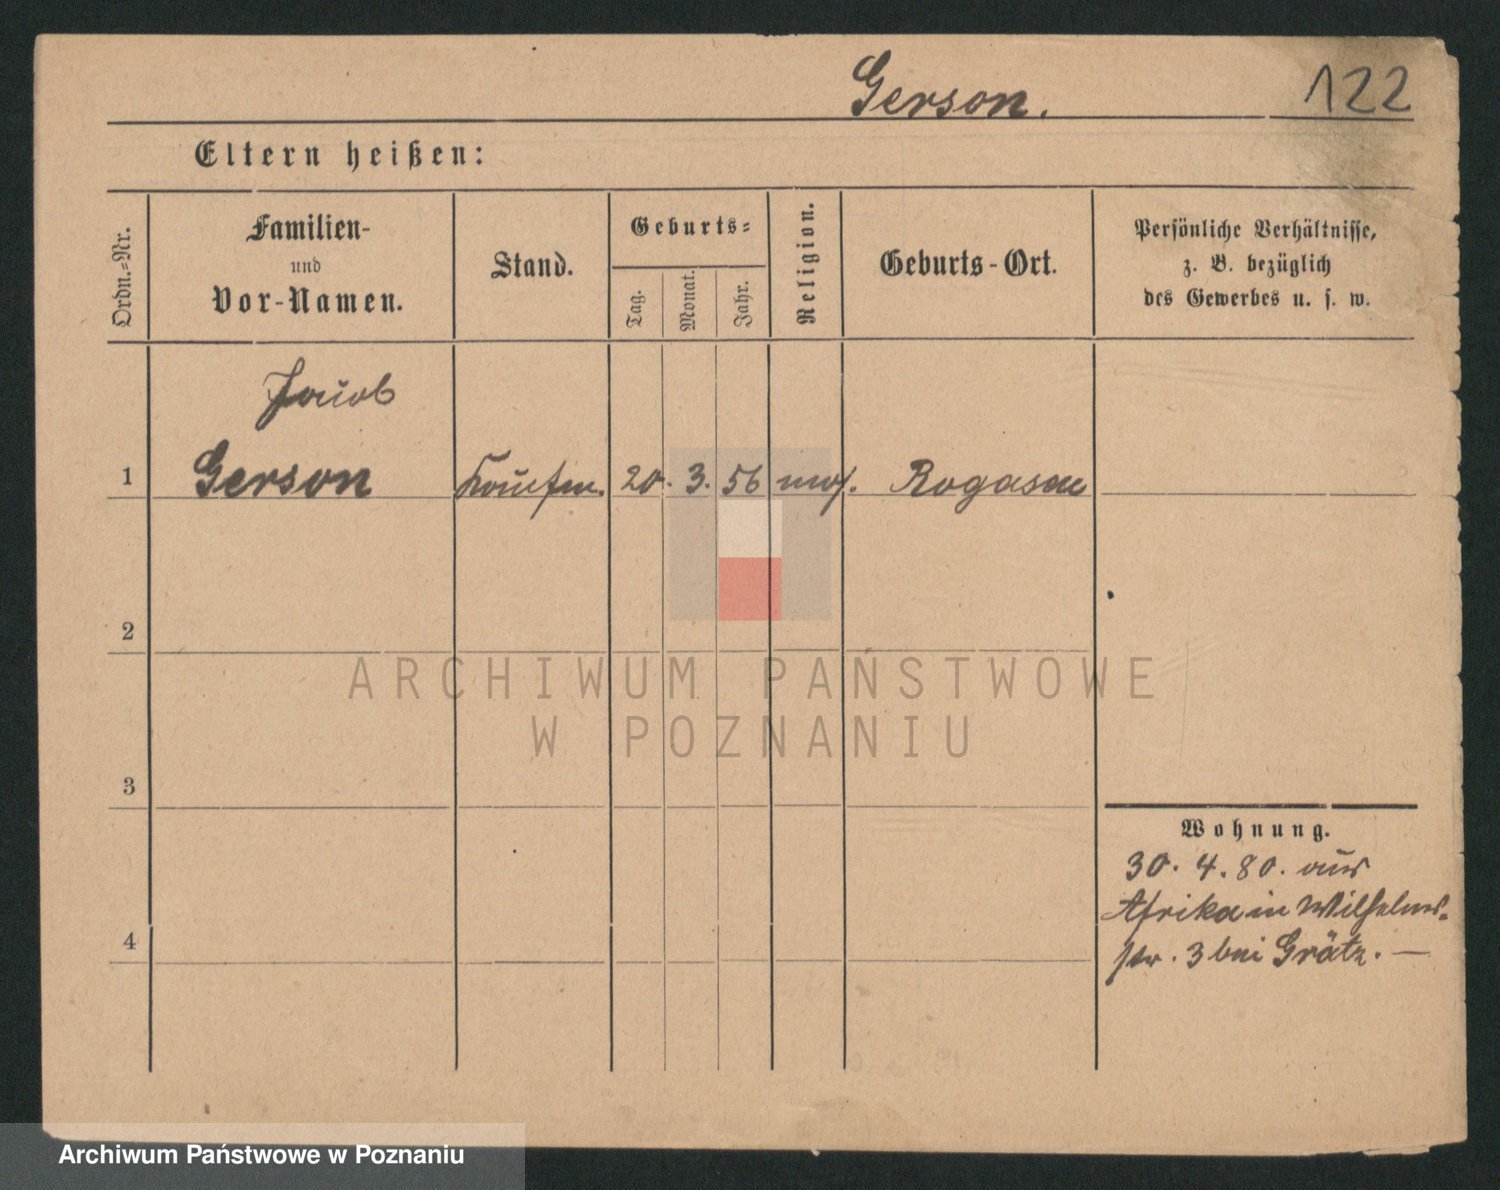 Gerson.
122
Eltern heißen:
Ordn.-Nr.
Familien-
und
Vor-Namen.
Stand.
Geburts-
Tag.
Monat.
Jahr.
Religion.
Geburts-Ort.
Persönliche Verhältnisse,
z. B. bezüglich
des Gewerbes u. s. w.
Jacob
1 Gerson Kaufm. 20. 3. 56 mos. Rogasen
2
ARCHIWUM PAŃSTWOWE
W POZNANIU
3
Wohnung.
30. 4. 80. aus
Afrika in Wilhelms-
4
str. 3 bei Grätz. —
Archiwum Państwowe w Poznaniu